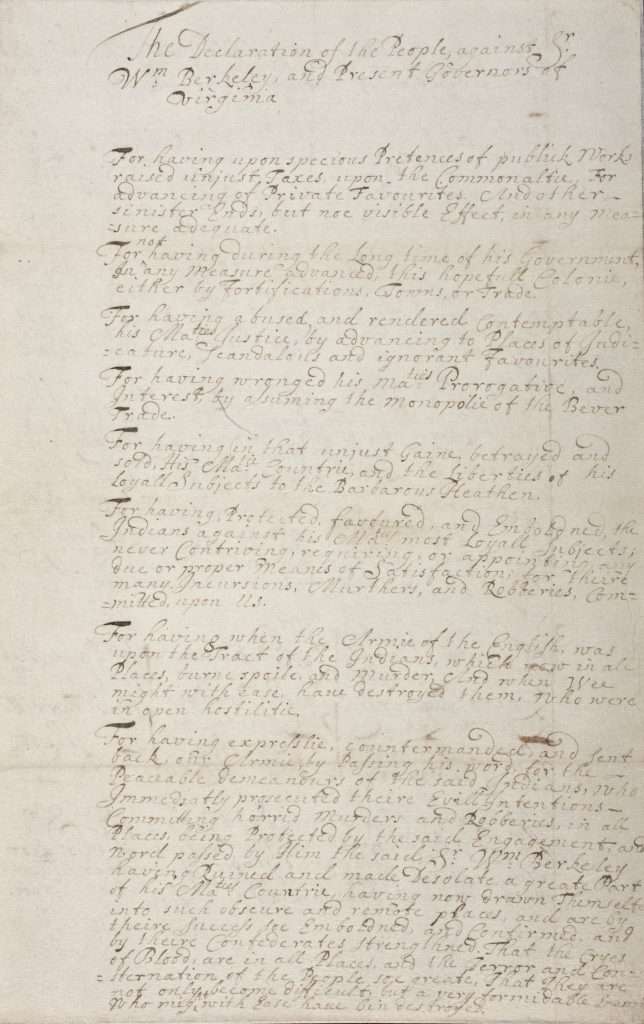 The Declaration of the People, against Sr
Wm Berkeley, and Present Governors of
Virginia
For having upon specious Pretences of publick Works
raised unjust Taxes, upon the Commonaltie, For
advancing of Private Favourites, And other
sinister Ends, but noe visible Effect, in any Mea-
-sure adequate.
not
For having during the Long time of his Government,
In any Measure advanced, this hopefull Colonie,
either by Fortifications, Towns, or Trade.
For having abused, and rendered Contemptable,
his Maties Justice, by advancing to Places of Judi-
-cature, Scandalous and ignorant Favourites.
For having wronged his Maties Prorogative, and
Interest, by assuming the Monopolie of the Bever
Trade.
For having in that unjust Gaine, betrayed and
sold, His Maties Countrie, and the Liberties of his
Loyall Subjects to the Barbarous Heathen.
For having, Protected, favoured, and Emboldned, the
Indians against his Maties most Loyall Subjects;
never Contriving, requiring, or appointing any
due or proper Meanes of Satisfaction, for theire
many Incursions, Murthers, and Robberies, Com-
=mitted, upon Us.
For having when the Armie of the English, was
upon the Tract of the Indians, which now in all
Places, burne spoile, and Murder, And when Wee
might with Ease, have destroyed them, Who were
in open hostilitie.
For having expresslie, countermanded, and sent
back, our Armie, by Passing his word, for the
Peaceable demeanours of the said Indians, Who
Immediatly prosecuted theire Evill Intentions
Committing horrid Murders and Robberies, in all
Places, being Protected by the said Engagement, and
word passed by Him the said Sr Wm Berkeley
having Ruined and made Desolate a great Part
of his Maties Countrie, having now drawn Themselves
into such obscure and remote places, and are by
theire success soe Emboldned, and Confirmed, and
by theire Confederates strengthned, That the Cryes
of Blood, are in all Places, and the Terror and Con-
=sternation of the People soe great, That They are
not only become difficult, but a very formidable Enemy
Who might with Ease have bin destroyed.